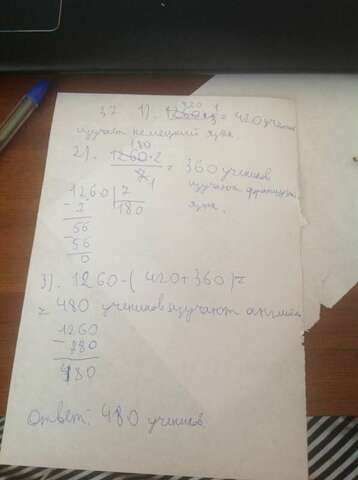 37 1). 1260·1 = 420 учени
изучает немецкий язык.
180
2). 1260·2 = 360 учеников
7 1
изучают француз.
язык.
1260 7
180
- 7
56
- 56
0
3). 1260-(420+360)=
= 480 учеников изучают англий
1260
- 780
480
Ответ: 480 учеников